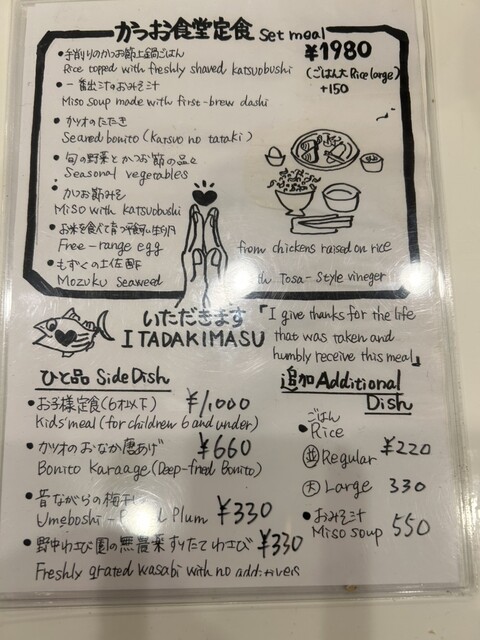 かつお食堂定食 Set meal
¥1980
・手削りのかつお節土鍋ごはん
Rice topped with freshly shaved katsuobushi
(ごはん大 Rice large)
+150
・一番出汁のおみそ汁
Miso soup made with first-brew dashi
・カツオのたたき
Seared bonito (Katsuo no tataki)
・旬の野菜とかつお節の品々
Seasonal vegetables
・かつお節みそ
Miso with katsuobushi
・お米を食べて育つ平飼い生卵
Free-range egg
from chickens raised on rice
・もずくの土佐酢
Mozuku Seaweed
Tosa-Style vineger
いただきます
ITADAKIMASU
「I give thanks for the life
that was taken and
humbly receive this meal」
ひと品 Side Dish
・お子様定食(6才以下) ¥1,000
Kids' meal (for children 6 and under)
・カツオのおなか唐あげ ¥660
Bonito Karaage (Deep-fried Bonito)
・昔ながらの梅干し ¥330
Umeboshi - Plum
・野中わさび園の無農薬すりたてわさび ¥330
Freshly grated wasabi with no additives
追加 Additional
Dish
ごはん
・Rice
並 Regular ¥220
大 Large 330
・おみそ汁
Miso soup 550